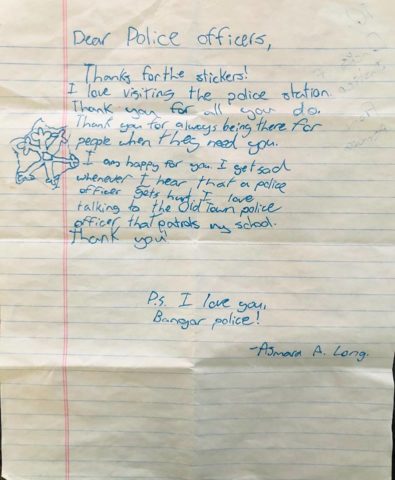 Dear Police officers,
Thanks for the stickers!
I love visiting the police station.
Thank you for all you do.
Thank you for always being there for
people when they need you.
I am happy for you. I get sad
whenever I hear that a police
officer gets hurt. I love
talking to the Old Town police
officer that patrols my school.
Thank you!
P.s. I love you,
Bangor police!
-Asmara A. Long.